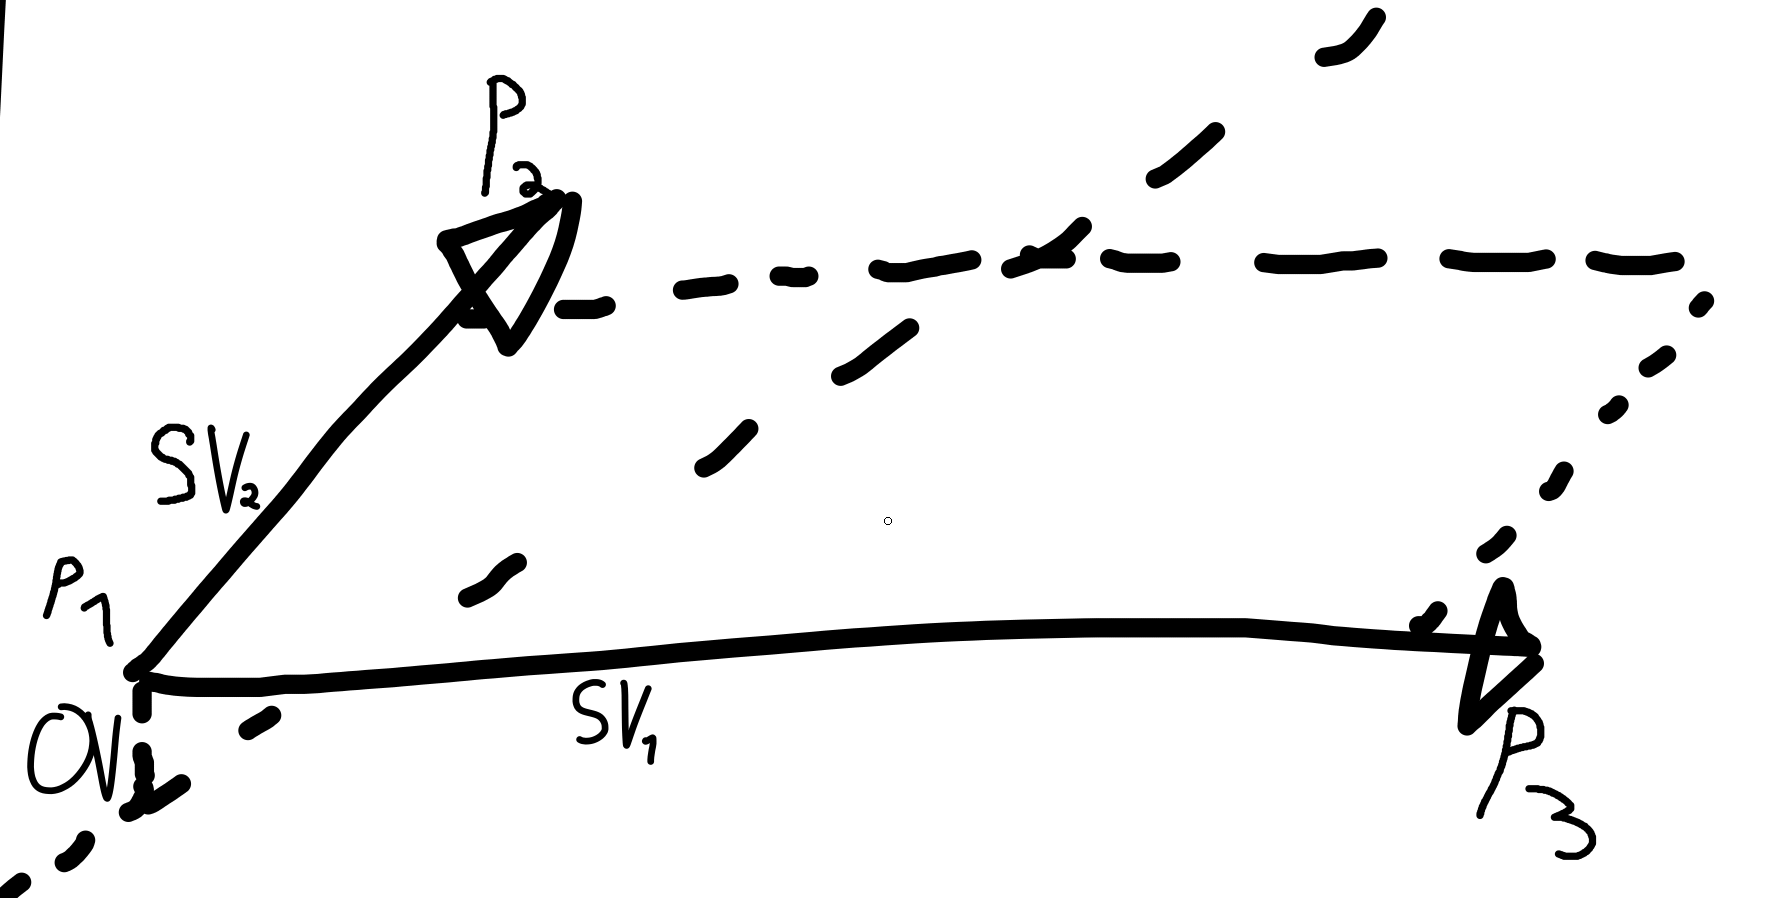 P2
SV2
P1
OV
SV1
P3